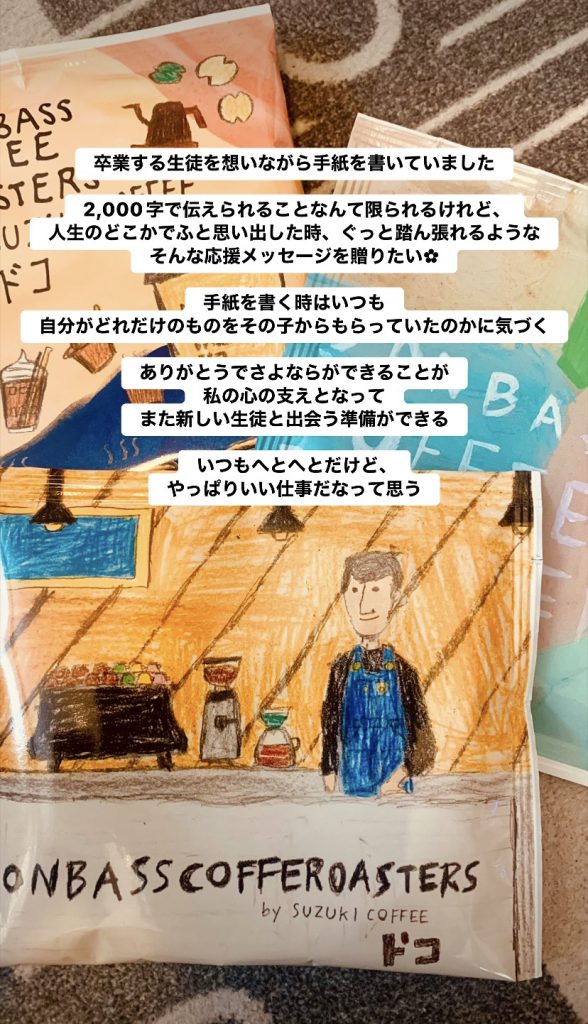 BASS
EE
STERS
COFFEE
ドコ
卒業する生徒を想いながら手紙を書いていました
2,000字で伝えられることなんて限られるけれど、
人生のどこかでふと思い出した時、ぐっと踏ん張れるような
そんな応援メッセージを贈りたい✿
手紙を書く時はいつも
自分がどれだけのものをその子からもらっていたのかに気づく
ありがとうでさよならができることが
私の心の支えとなって
また新しい生徒と出会う準備ができる
いつもへとへとだけど、
やっぱりいい仕事だなって思う
ONBASSCOFFEROASTERS
by SUZUKI COFFEE
ドコ